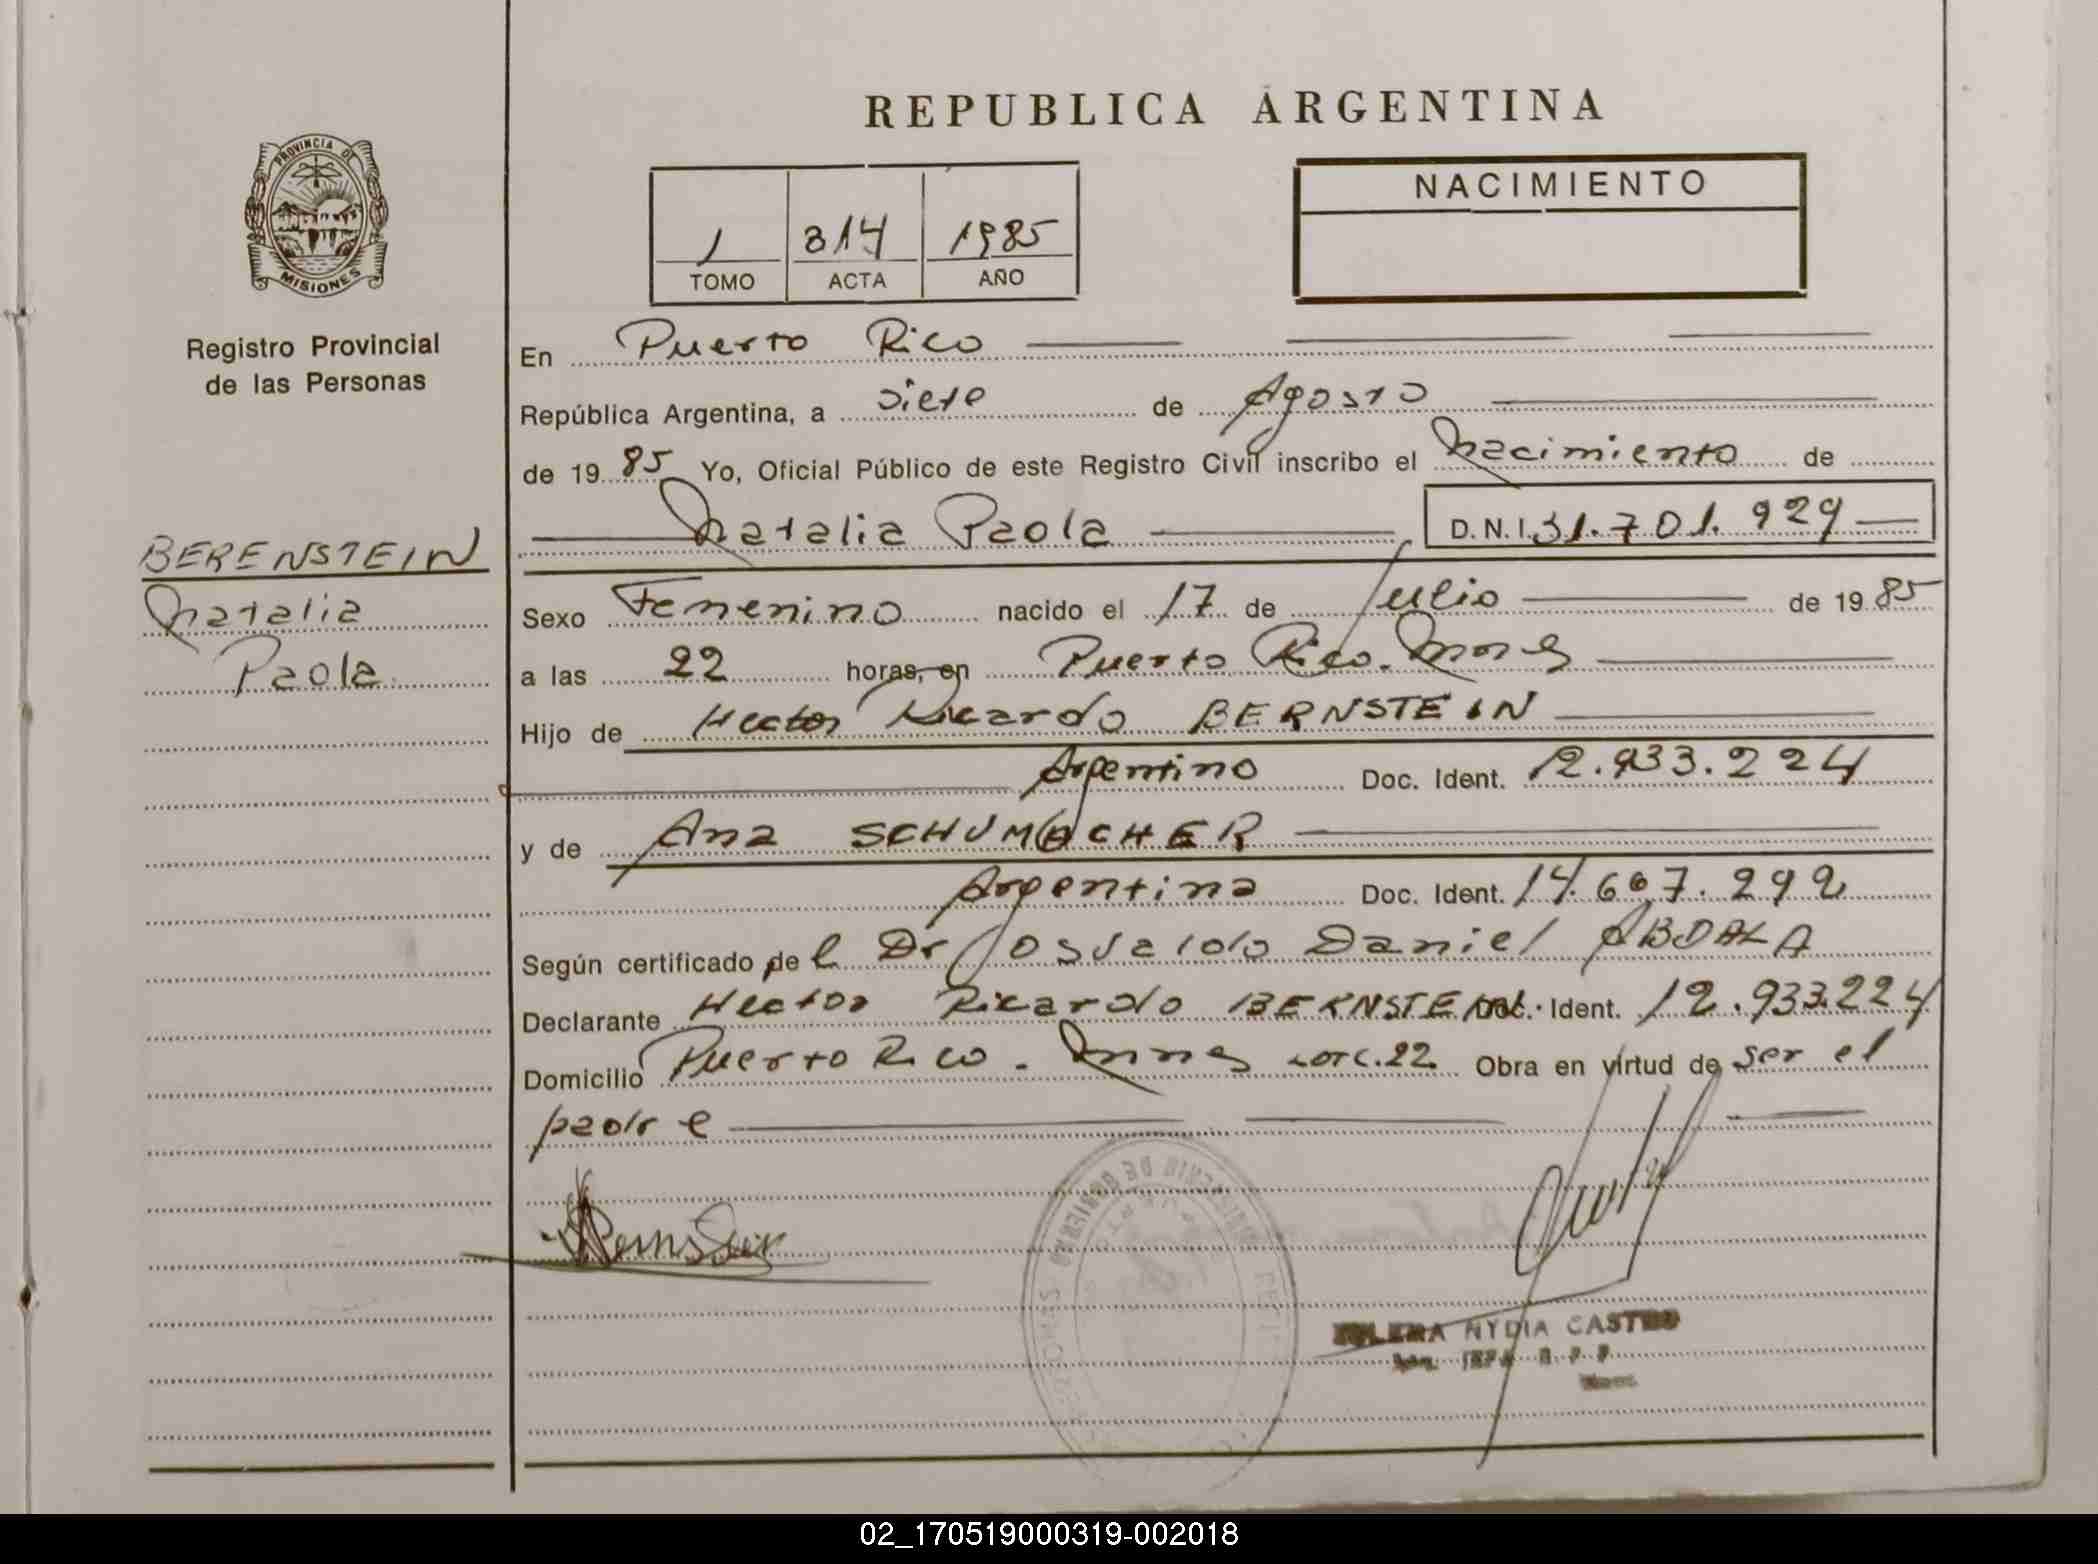 PROVINCIA DE
MISIONES
Registro Provincial
de las Personas
BERENSTEIN
Natalia
Paola
REPUBLICA ARGENTINA
1 314 1985
TOMO ACTA AÑO
NACIMIENTO
En Puerto Rico
República Argentina, a siete de Agosto
de 1985 Yo, Oficial Público de este Registro Civil inscribo el Nacimiento de
Natalia Paola D.N.I. 31.701.929
Sexo Femenino nacido el 17 de Julio de 1985
a las 22 horas, en Puerto Rico. Mnes
Hijo de Hector Ricardo BERNSTEIN
Argentino Doc. Ident. 12.933.224
y de Ana SCHUMACHER
Argentina Doc. Ident. 14.607.292
Según certificado del Dr Osvaldo Daniel ABDALA
Declarante Hector Ricardo BERNSTEIN Doc. Ident. 12.933.224
Domicilio Puerto Rico - Mnes Lote.22 Obra en virtud de ser el
padre
NYDIA CASTRO
02_170519000319-002018